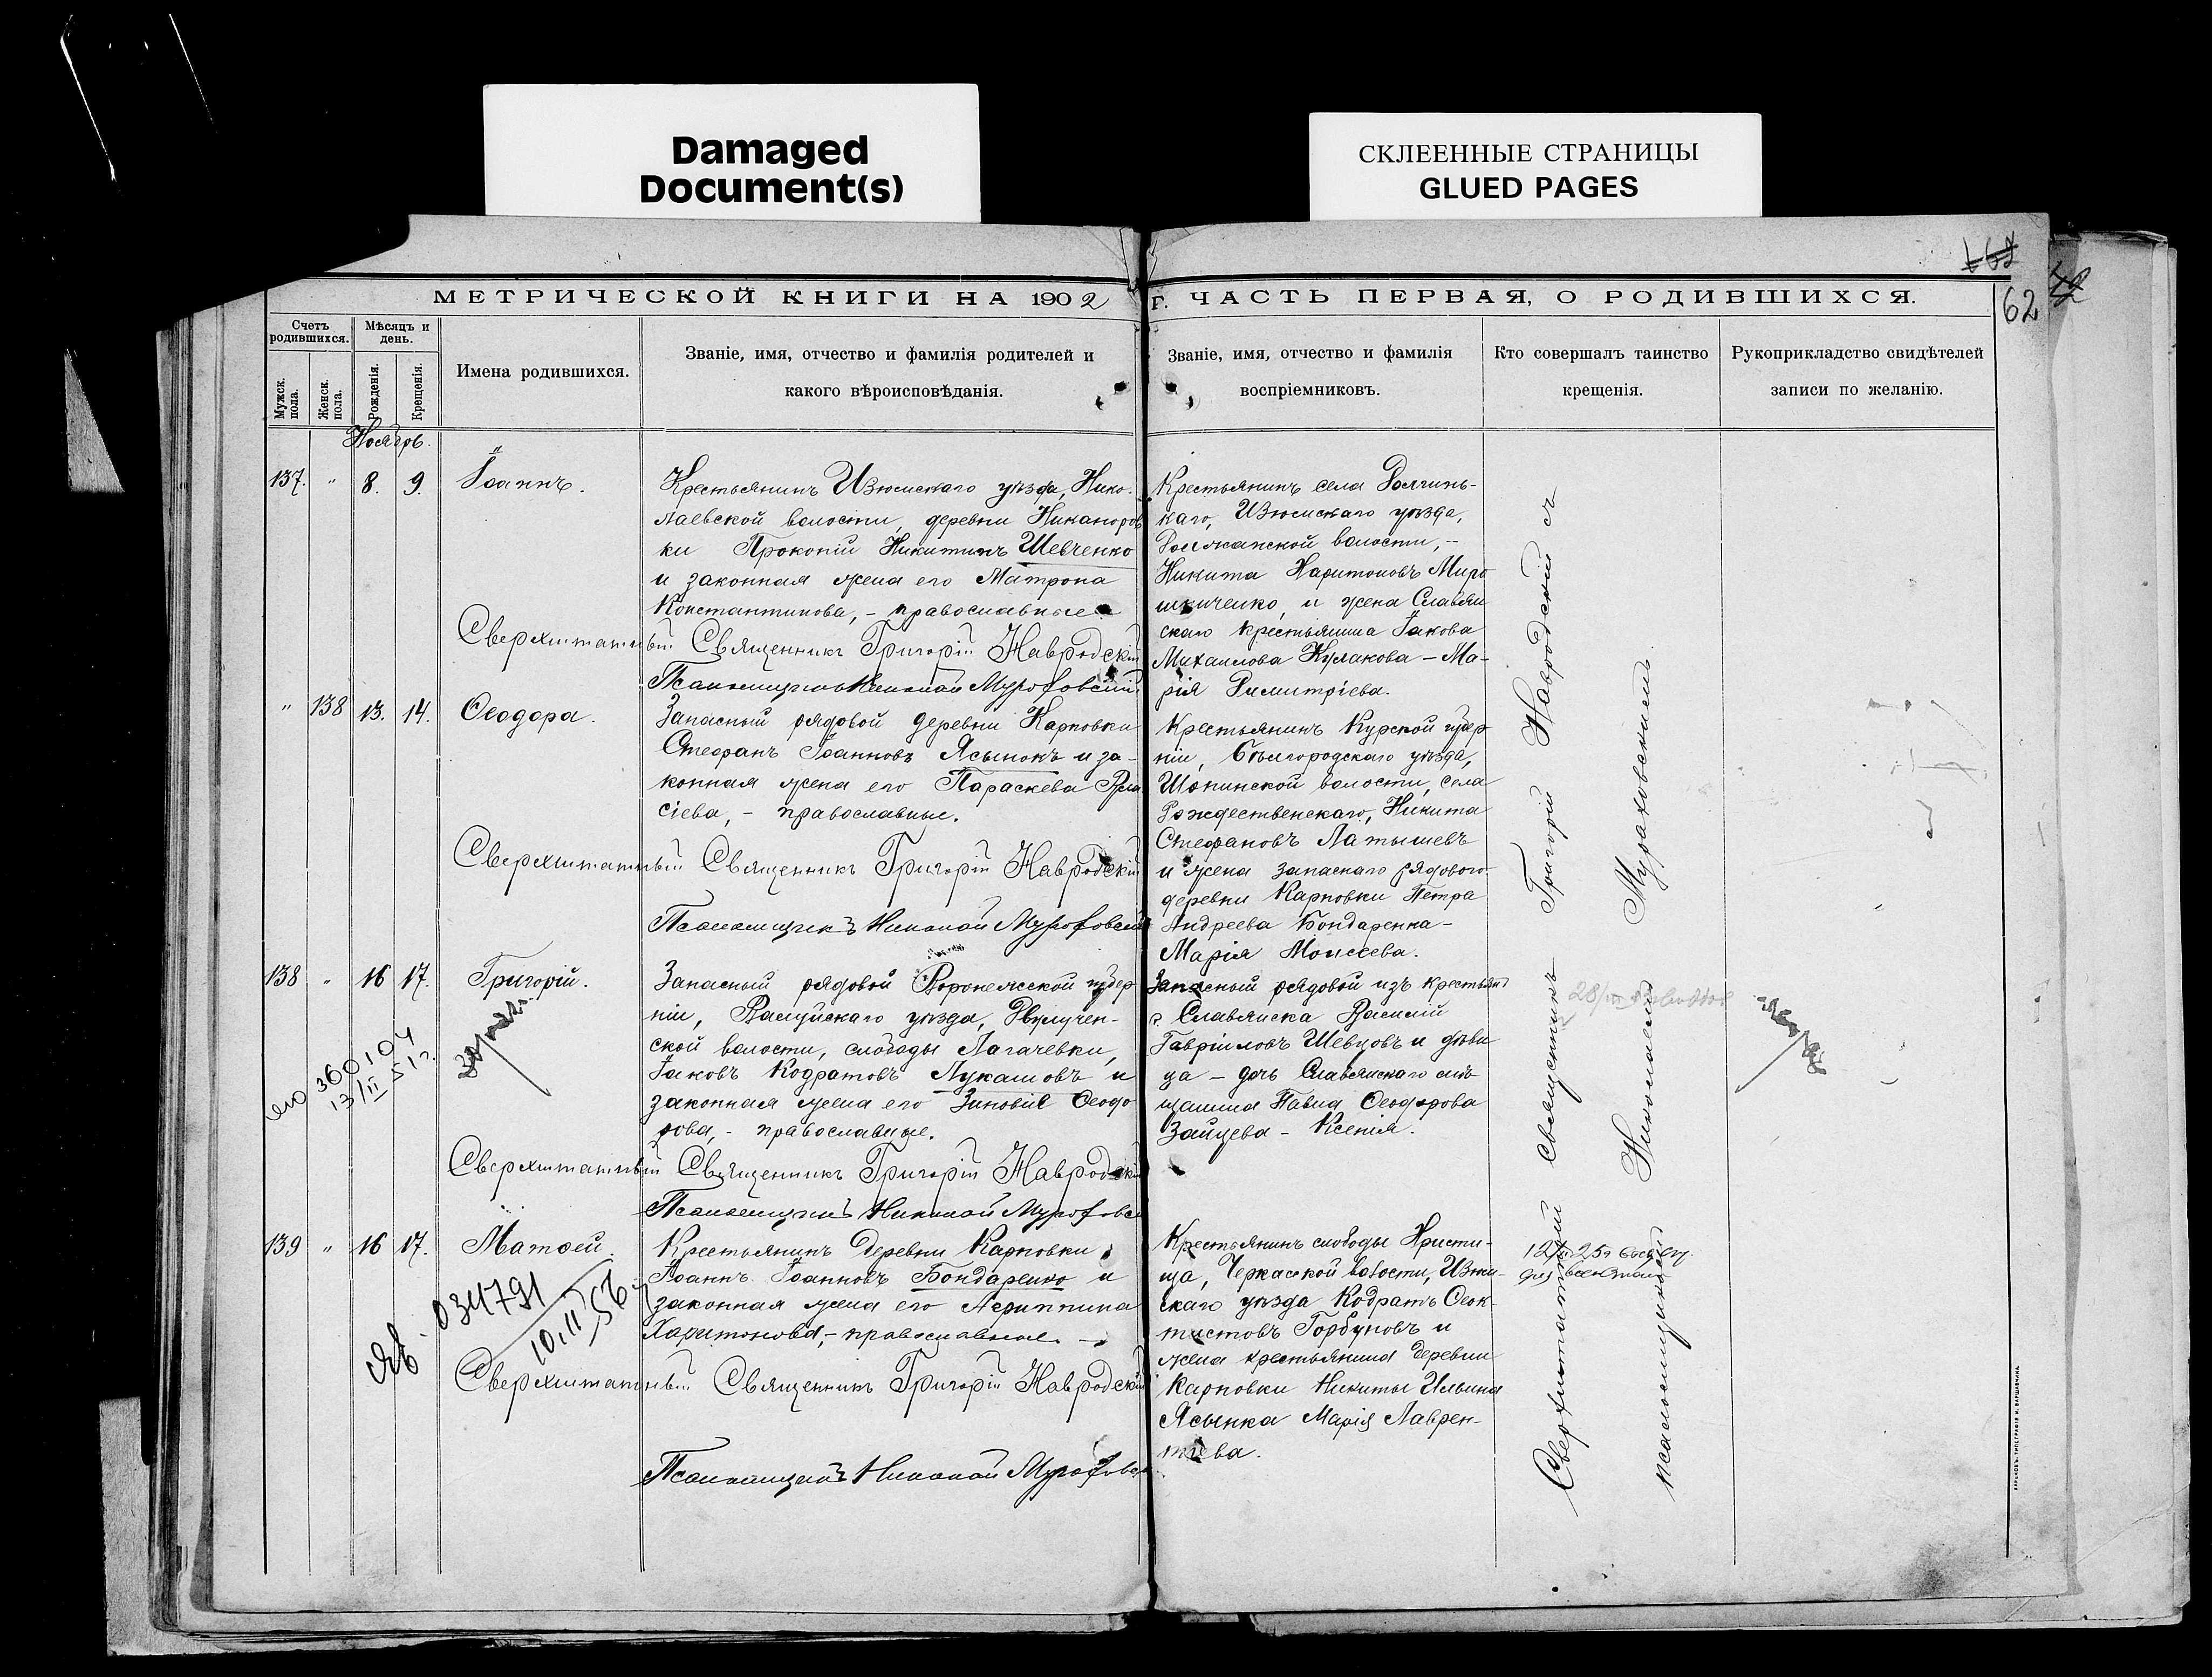 Damaged
Document(s)
СКЛЕЕННЫЕ СТРАНИЦЫ
GLUED PAGES
62
МЕТРИЧЕСКОЙ КНИГИ НА 1902
г. ЧАСТЬ ПЕРВАЯ, О РОДИВШИХСЯ.
Счетъ родившихся.
Мужск. пола.
Женск. пола.
Мѣсяцъ и день.
Рожденія.
Крещенія.
Имена родившихся.
Званіе, имя, отчество и фамилія родителей и
какого вѣроисповѣданія.
Званіе, имя, отчество и фамилія
воспріемниковъ.
Кто совершалъ таинство
крещенія.
Рукоприкладство свидѣтелей
записи по желанію.
Ноябрь.
137. " 8. 9. Іоаннъ.
Крестьянинъ Изюмскаго уѣзда, Нико-
лаевской волости, деревни Никаноров
ки Прокопій Никитинъ Шевченко
и законная жена его Матрона
Константинова, - православные
Сверхштатный Священникъ Григорій Навродскій
Псаломщикъ Николай Мураховскій
Крестьянинъ села Долгинь-
каго, Изюмскаго уѣзда,
волости, -
Никита Харитоновъ Миро
шниченко и жена Славян
скаго крестьянина Іакова
Михаилова Кулакова - Ма-
рія Димитріева.
" 138 13. 14. Ѳеодора.
Запасный рядовой деревни Карповки
Стефанъ Іоанновъ Ясынокъ и за-
конная жена его Параскева Вла
сіева, - православные.
Сверхштатный Священникъ Григорій Навродскій
Псаломщикъ Николай Мураховскій
Крестьянинъ Курской губер
ніи, Бѣлгородскаго уѣзда,
Шопинской волости, села
Рождественскаго, Никита
Стефановъ Латышевъ
и жена запаснаго рядового
деревни Карповки Петра
Андреева Бондаренка -
Марія Моисеева.
138 " 16 17. Григорій.
360104
13/II 51 г.
Запасный рядовой Воронежской губер
ніи, Валуйскаго уѣзда, Двулучен-
ской волости, слободы Лагачевки,
Іаковъ Кодратовъ Лукашовъ и
законная жена его Зиновія Ѳеодо
рова, - православные.
Сверхштатный Священникъ Григорій Навродскій
Псаломщикъ Николай Мураховскій
Запасный рядовой изъ крестьянъ
г. Славянска Василій
Гавріиловъ Шевцовъ и дѣви
ца - дочь Славянскаго мѣ
щанина Павла Ѳеодорова
Зайцева - Ксенія.
139 " 16 17. Матѳей.
034791
10.II.56
Крестьянинъ деревни Карповки
Іоаннъ Іоанновъ Бондаренко и
законная жена его Агриппина
Харитонова, - православные
Сверхштатный Священникъ Григорій Навродскій
Псаломщикъ Николай Мураховскій
Крестьянинъ слободы Христи-
ща, Черкасской волости, Изюм-
скаго уѣзда Кодратъ Ѳеок-
тистовъ Горбуновъ и
жена крестьянина деревни
Карповки Никиты Ильина
Ясынка Марія Лаврен-
тіева.
Сверхштатный Священникъ Григорій Навродскій съ
псаломщикомъ Николаемъ Мураховскимъ